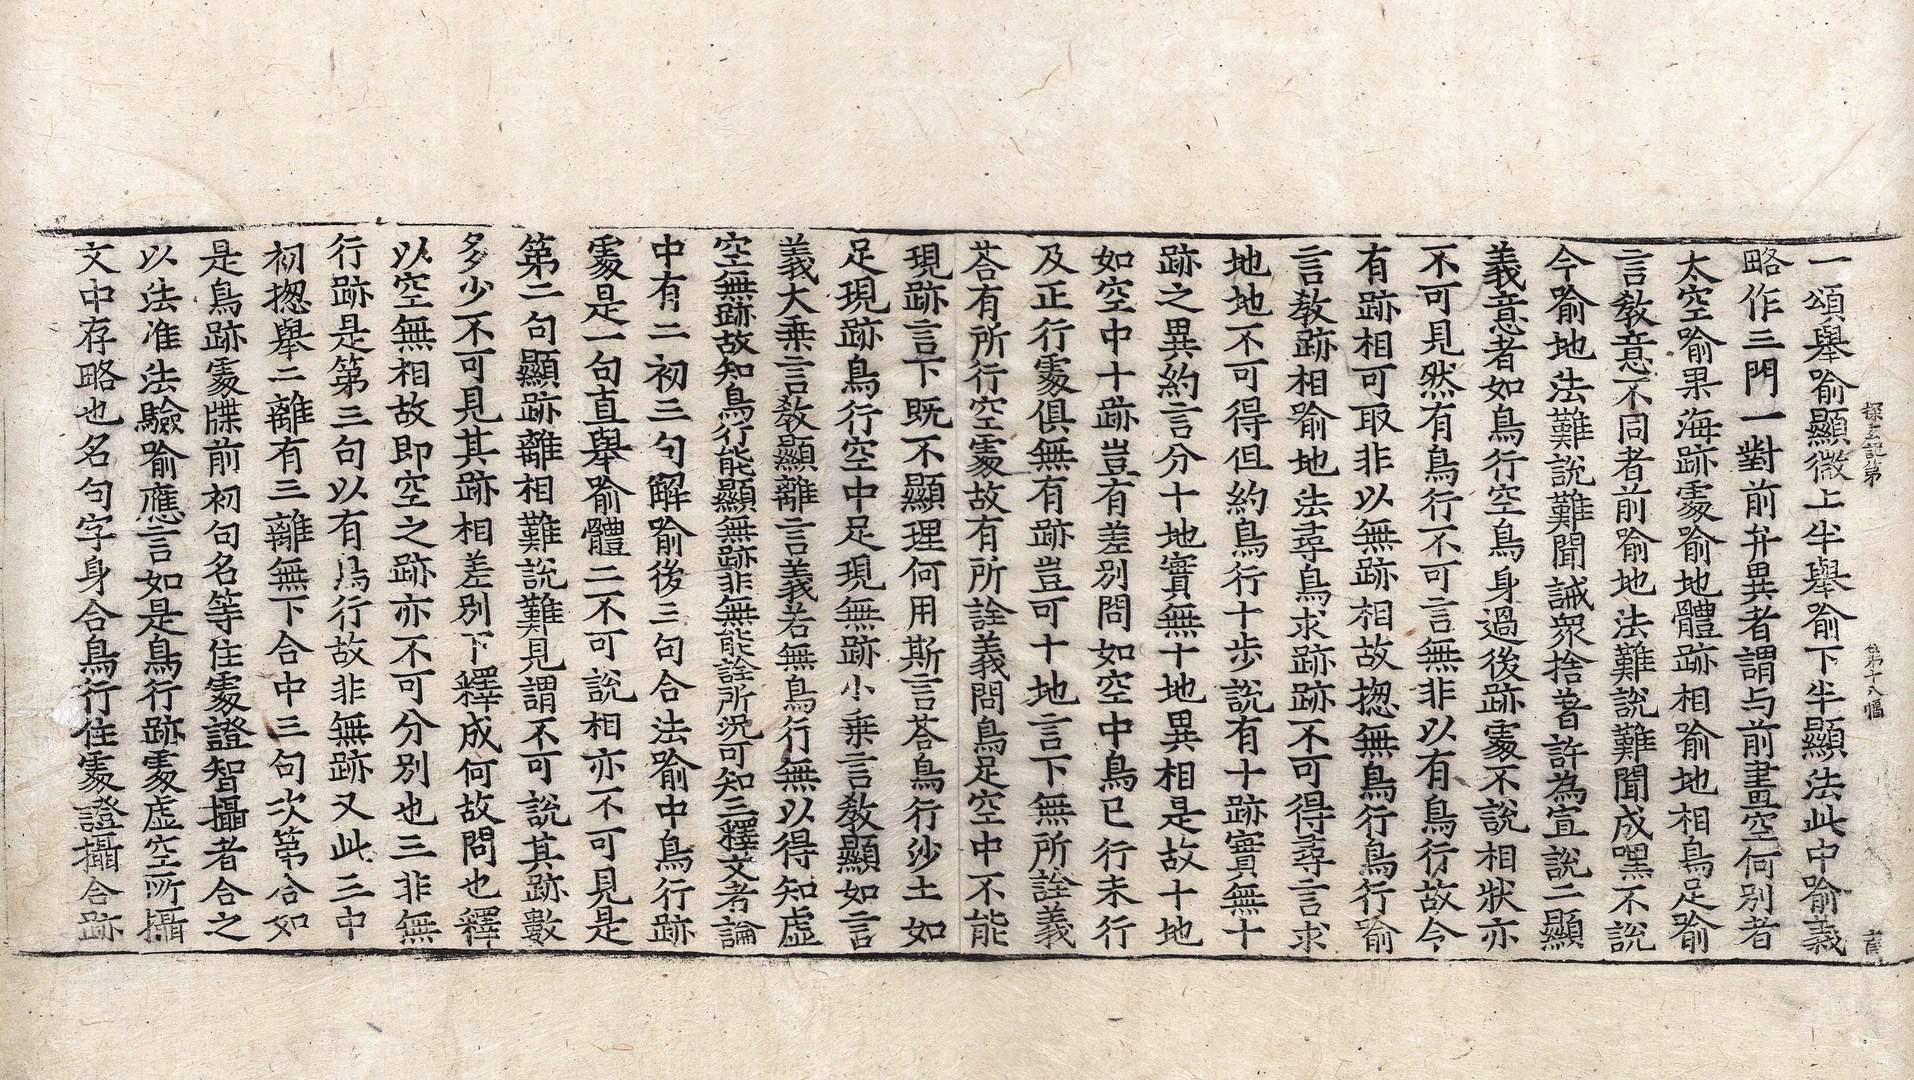 探玄記第
第十八幅
一頌舉喻顯微上半舉喻下半顯法此中喻義
略作三門一對前弁異者謂与前畫空何別者
太空喻果海跡䖏喻地體跡相喻地相鳥足喻
言教意不同者前喻地法難說難聞成嘿不說
今喻地法難說難聞誡衆捨著許為宣說二顯
義意者如鳥行空鳥身過後跡䖏不說相狀亦
不可見然有鳥行不可言無非以有鳥行故令
有跡相可取非以無跡相故揔無鳥行鳥行喻
言教跡相喻地法尋鳥求跡跡不可得尋言求
地地不可得但約鳥行十步說有十跡實無十
跡之異約言分十地實無十地異相是故十地
如空中十跡豈有差別問如空中鳥已行未行
及正行䖏俱無有跡豈可十地言下無所詮義
荅有所行空䖏故有所詮義問鳥足空中不能
現跡言下既不顯理何用斯言荅鳥行沙土如
足現跡鳥行空中足現無跡小乘言教顯如言
義大乘言教顯離言義若無鳥行無以得知虛
空無跡故知鳥行能顯無跡非無能詮所況可知三釋文者論
中有二初三句解喻後三句合法喻中鳥行跡
䖏是一句直舉喻體二不可說相亦不可見是
第二句顯跡離相難說難見謂不可說其跡數
多少不可見其跡相差別下釋成何故問也釋
以空無相故即空之跡亦不可分別也三非無
行跡是第三句以有鳥行故非無跡又此三中
初揔舉二離有三離無下合中三句次第合如
是鳥跡䖏牒前初句名等住䖏證智攝者合之
以法准法驗喻應言如是鳥行跡䖏虛空所攝
文中存略也名句字身合鳥行住䖏證攝合跡